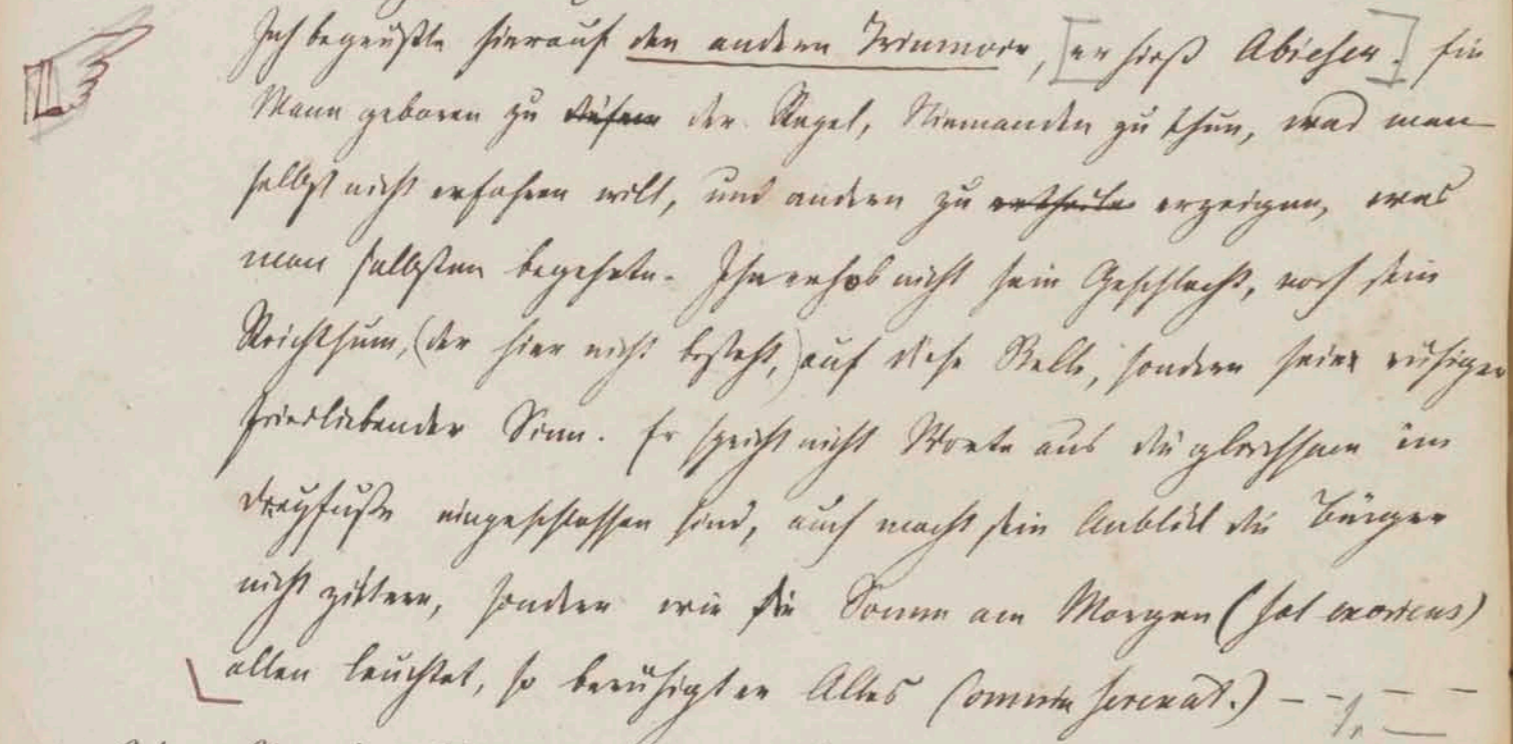 Ich begrüßte hierauf den andern Triumvir, [er hieß Abieser.] Ein
Mann geboren zu diesem der Regel, Niemanden zu thun, was man
selbst nicht erfahren will, und andern zu ertheile erzeigen, was
man selbsten begehrte. Ihn erhob nicht sein Geschlecht, noch sein
Reichthum, (der hier nicht besteht,) auf diese Stelle, sondern sein ruhiger
friedliebender Sinn. Er spricht nicht Worte aus die gleichsam im
Dreyfuße eingeschlossen sind, auch macht sein Anblick die Bürger
nicht zittern, sondern wie die Sonne am Morgen (sol exoriens)
allen leuchtet, so beruhigt er Alles (omnia serenat.) – – – –